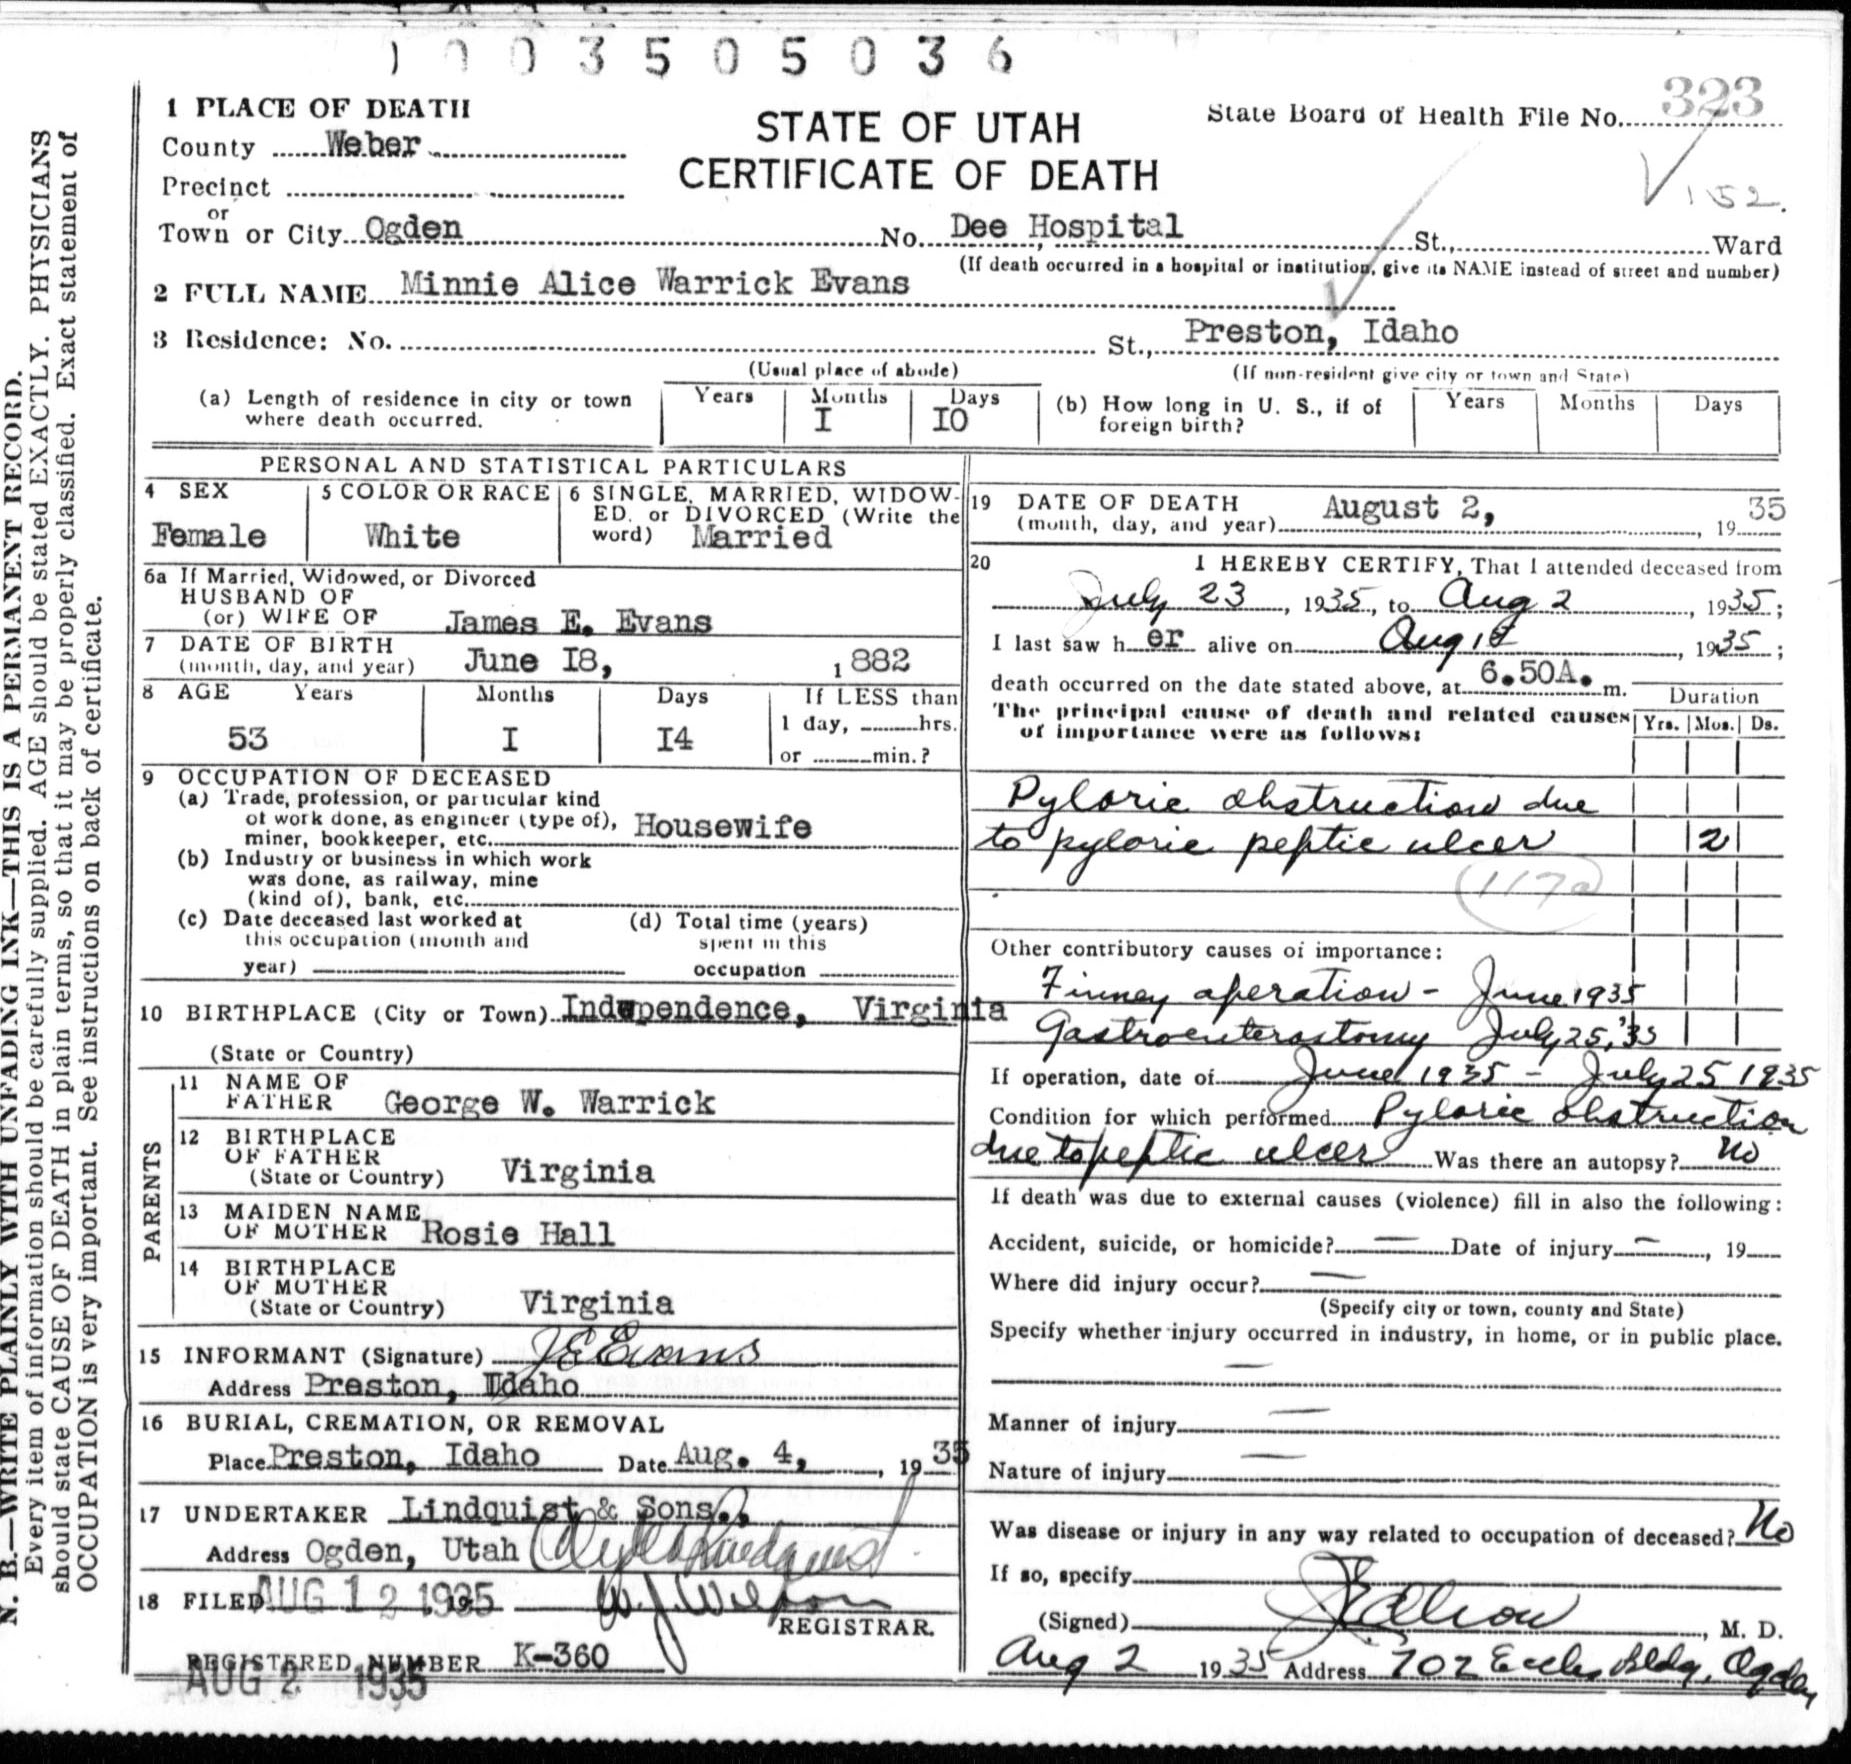 1003505036
1 PLACE OF DEATH
County Weber
Precinct
or
Town or City Ogden No. Dee Hospital St., Ward
STATE OF UTAH
CERTIFICATE OF DEATH
State Board of Health File No. 323
152.
(If death occurred in a hospital or institution, give its NAME instead of street and number)
2 FULL NAME Minnie Alice Warrick Evans
3 Residence: No. St., Preston, Idaho
(Usual place of abode) (If non-resident give city or town and State)
(a) Length of residence in city or town where death occurred. Years Months I Days IO (b) How long in U. S., if of foreign birth? Years Months Days
PERSONAL AND STATISTICAL PARTICULARS
4 SEX Female
5 COLOR OR RACE White
6 SINGLE, MARRIED, WIDOWED, or DIVORCED (Write the word) Married
6a If Married, Widowed, or Divorced
HUSBAND OF
(or) WIFE OF James E. Evans
7 DATE OF BIRTH
(month, day, and year) June I8, 1882
8 AGE Years 53 Months I Days I4 If LESS than 1 day, hrs. or min.?
9 OCCUPATION OF DECEASED
(a) Trade, profession, or particular kind
of work done, as engineer (type of),
miner, bookkeeper, etc. Housewife
(b) Industry or business in which work
was done, as railway, mine
(kind of), bank, etc.
(c) Date deceased last worked at
this occupation (month and
year)
(d) Total time (years)
spent in this
occupation
10 BIRTHPLACE (City or Town) Independence, Virginia
(State or Country)
PARENTS
11 NAME OF
FATHER George W. Warrick
12 BIRTHPLACE
OF FATHER
(State or Country) Virginia
13 MAIDEN NAME
OF MOTHER Rosie Hall
14 BIRTHPLACE
OF MOTHER
(State or Country) Virginia
15 INFORMANT (Signature) J E Evans
Address Preston, Idaho
16 BURIAL, CREMATION, OR REMOVAL
Place Preston, Idaho Date Aug. 4, 1935
17 UNDERTAKER Lindquist & Sons.
Address Ogden, Utah Clyde Lindquist
18 FILED AUG 12 1935 W. J. Wilson
REGISTRAR.
REGISTERED NUMBER K-360
AUG 2 1935
19 DATE OF DEATH
(month, day, and year) August 2, 1935
20 I HEREBY CERTIFY, That I attended deceased from
July 23, 1935, to Aug 2, 1935;
I last saw her alive on Aug 1, 1935;
death occurred on the date stated above, at 6.50A. m.
The principal cause of death and related causes
of importance were as follows:
Duration
Yrs. Mos. Ds.
Pyloric obstruction due
to pyloric peptic ulcer 2
(117a)
Other contributory causes of importance:
Finney operation - June 1935
Gastroenterostomy July 25, '35
If operation, date of June 1935 - July 25 1935
Condition for which performed Pyloric obstruction
due to peptic ulcer Was there an autopsy? No
If death was due to external causes (violence) fill in also the following:
Accident, suicide, or homicide? — Date of injury —, 19
Where did injury occur? —
(Specify city or town, county and State)
Specify whether injury occurred in industry, in home, or in public place.
—
Manner of injury —
Nature of injury —
Was disease or injury in any way related to occupation of deceased? No
If so, specify
(Signed) M. D.
Aug 2 1935 Address 702 Eccles Bldg, Ogden
N. B.—WRITE PLAINLY WITH UNFADING INK—THIS IS A PERMANENT RECORD.
Every item of information should be carefully supplied. AGE should be stated EXACTLY. PHYSICIANS
should state CAUSE OF DEATH in plain terms, so that it may be properly classified. Exact statement of
OCCUPATION is very important. See instructions on back of certificate.